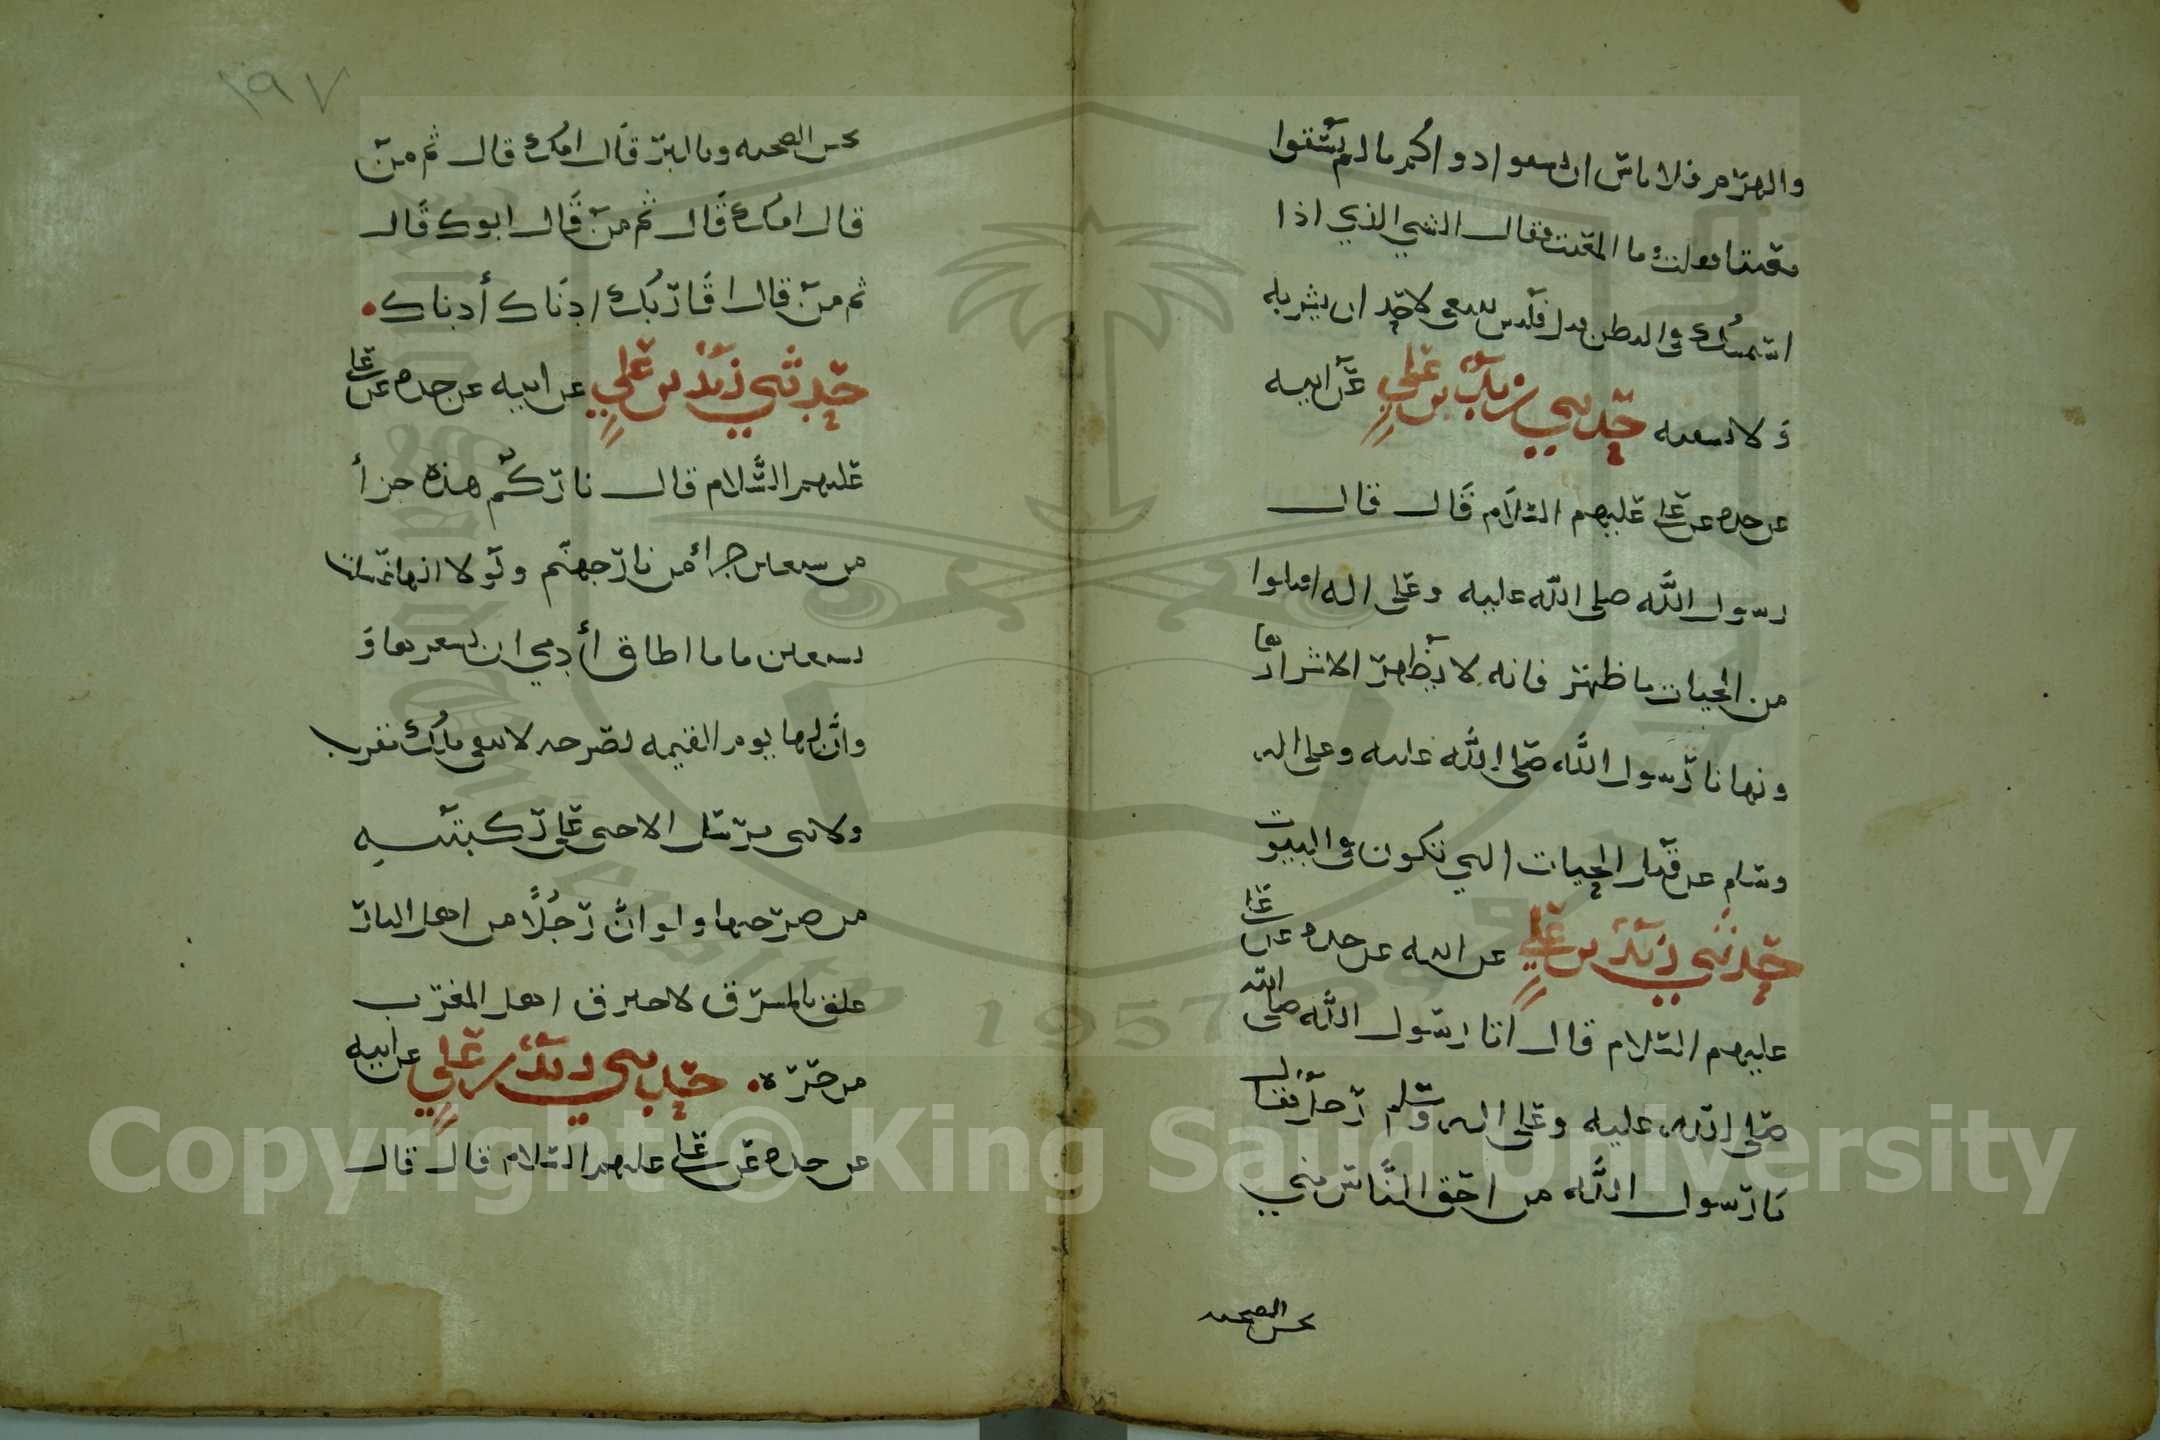 والهرم فلا باس ان يسعوا دواكم ما لم يسقوا
مقيتا فقلت ما المقيت فقال الشي الذي اذا
استمسك في البطن قتل فليس ينبغي لاحد ان يشربه
ولا يسقيه حدثني زيد بن علي عن ابيه
عن جده عن علي عليهم السلام قال قال
رسول الله صلى الله عليه وعلى اله اقتلوا
من الحيات ما ظهر فانه لا يظهر الا شرارها
ونهانا رسول الله صلى الله عليه وعلى اله
وسلم عن قتل الحيات التي تكون في البيوت
حدثني زيد بن علي عن ابيه عن جده عن علي
عليهم السلام قال اتا رسول الله صلى الله
صلى الله عليه وعلى اله وسلم رجل فقال
يا رسول الله من احق الناس مني
بحسن الصحبه
١٩٧
بحسن الصحبه وبالبر قال امك قال ثم من
قال امك قال ثم من قال ابوك قال
ثم من قال اقاربك ادناك أدناك
حدثني زيد بن علي عن ابيه عن جده عن علي
عليهم السلام قال ناركم هذه جزأ
من سبعين جزأ من نار جهنم ولولا انها غسلت
بسبعين ما ما اطاق أدمي ان يسعرها و
وان لها يوم القيمه لصرخه لا يبقى ملك مقرب
ولا نبي مرسل الا جثى على ركبتيه
من صرختها ولو ان رجلا من اهل النار
علق بالمشرق لاحترق اهل المغرب
من حره حدثني زيد بن علي عن ابيه
عن جده عن علي عليهم السلام قال قال
Copyright © King Saud University
1957